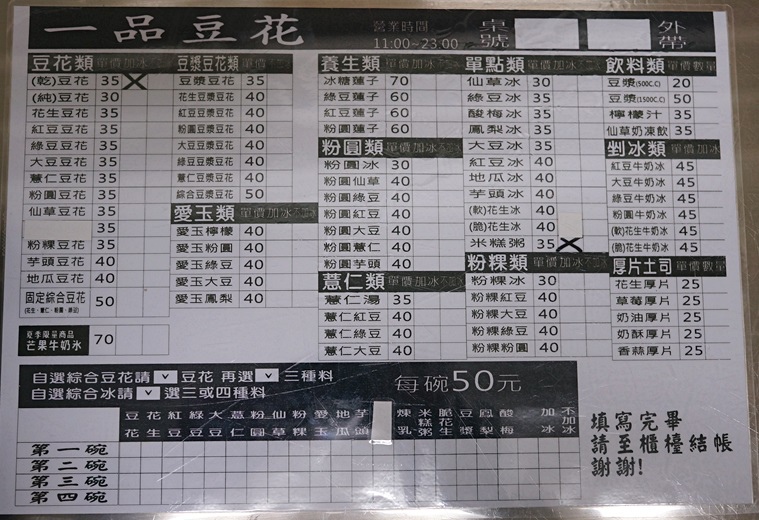 一品豆花
營業時間
11:00~23:00
桌號
外帶
豆花類 單價 加冰
(乾)豆花 35
(純)豆花 30
花生豆花 35
紅豆豆花 35
綠豆豆花 35
大豆豆花 35
薏仁豆花 35
粉圓豆花 35
仙草豆花 35
35
粉粿豆花 35
芋頭豆花 40
地瓜豆花 40
固定綜合豆花 50
夏季限量商品
芒果牛奶冰 70
豆漿豆花類 單價 加冰
豆漿豆花 35
花生豆漿豆花 40
紅豆豆漿豆花 40
粉圓豆漿豆花 40
大豆豆漿豆花 40
綠豆豆漿豆花 40
薏仁豆漿豆花 40
綜合豆漿豆花 50
愛玉類 單價 加冰 不加冰
愛玉檸檬 40
愛玉粉圓 40
愛玉綠豆 40
愛玉大豆 40
愛玉鳳梨 40
養生類 單價 加冰
冰糖蓮子 70
綠豆蓮子 60
紅豆蓮子 60
粉圓蓮子 60
粉圓類 單價 加冰
粉圓冰 30
粉圓仙草 40
粉圓綠豆 40
粉圓紅豆 40
粉圓大豆 40
粉圓薏仁 40
粉圓芋頭 40
薏仁類 單價 加冰 不加冰
薏仁湯 35
薏仁紅豆 40
薏仁綠豆 40
薏仁大豆 40
單點類 單價 加冰
仙草冰 30
綠豆冰 35
酸梅冰 35
鳳梨冰 35
大豆冰 35
紅豆冰 40
地瓜冰 40
芋頭冰 40
(軟)花生冰 40
(脆)花生冰 40
米糕粥 35
粉粿類 單價 加冰
粉粿冰 30
粉粿紅豆 40
粉粿大豆 40
粉粿綠豆 40
粉粿粉圓 40
飲料類 單價 數量
豆漿(500C.C) 20
豆漿(1500C.C) 50
檸檬汁 35
仙草奶凍飲 35
剉冰類 單價 加冰
紅豆牛奶冰 45
大豆牛奶冰 45
綠豆牛奶冰 45
粉圓牛奶冰 45
(軟)花生牛奶冰 45
(脆)花生牛奶冰 45
厚片土司 單價 數量
花生厚片 25
草莓厚片 25
奶油厚片 25
奶酥厚片 25
香蒜厚片 25
自選綜合豆花請 ˇ 豆花 再選 ˇ 三種料
自選綜合冰請 ˇ 選三或四種料
每碗50元
豆花 花生 紅豆 綠豆 大豆 薏仁 粉圓 仙草 粉粿 愛玉 地瓜 芋頭 煉乳 米糕粥 脆花生 豆漿 鳳梨 酸梅 加冰 不加冰
第一碗
第二碗
第三碗
第四碗
填寫完畢
請至櫃檯結帳
謝謝!